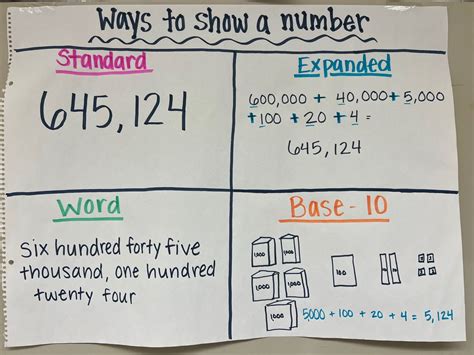 Ways to show a number
Standard
645,124
Expanded
600,000 + 40,000 + 5,000
+ 100 + 20 + 4 =
645,124
Word
Six hundred forty five
thousand, one hundred
twenty four
Base - 10
1000
1000
1000
1000
1000
100
10
10
1 1
1 1
5000 + 100 + 20 + 4 = 5,124